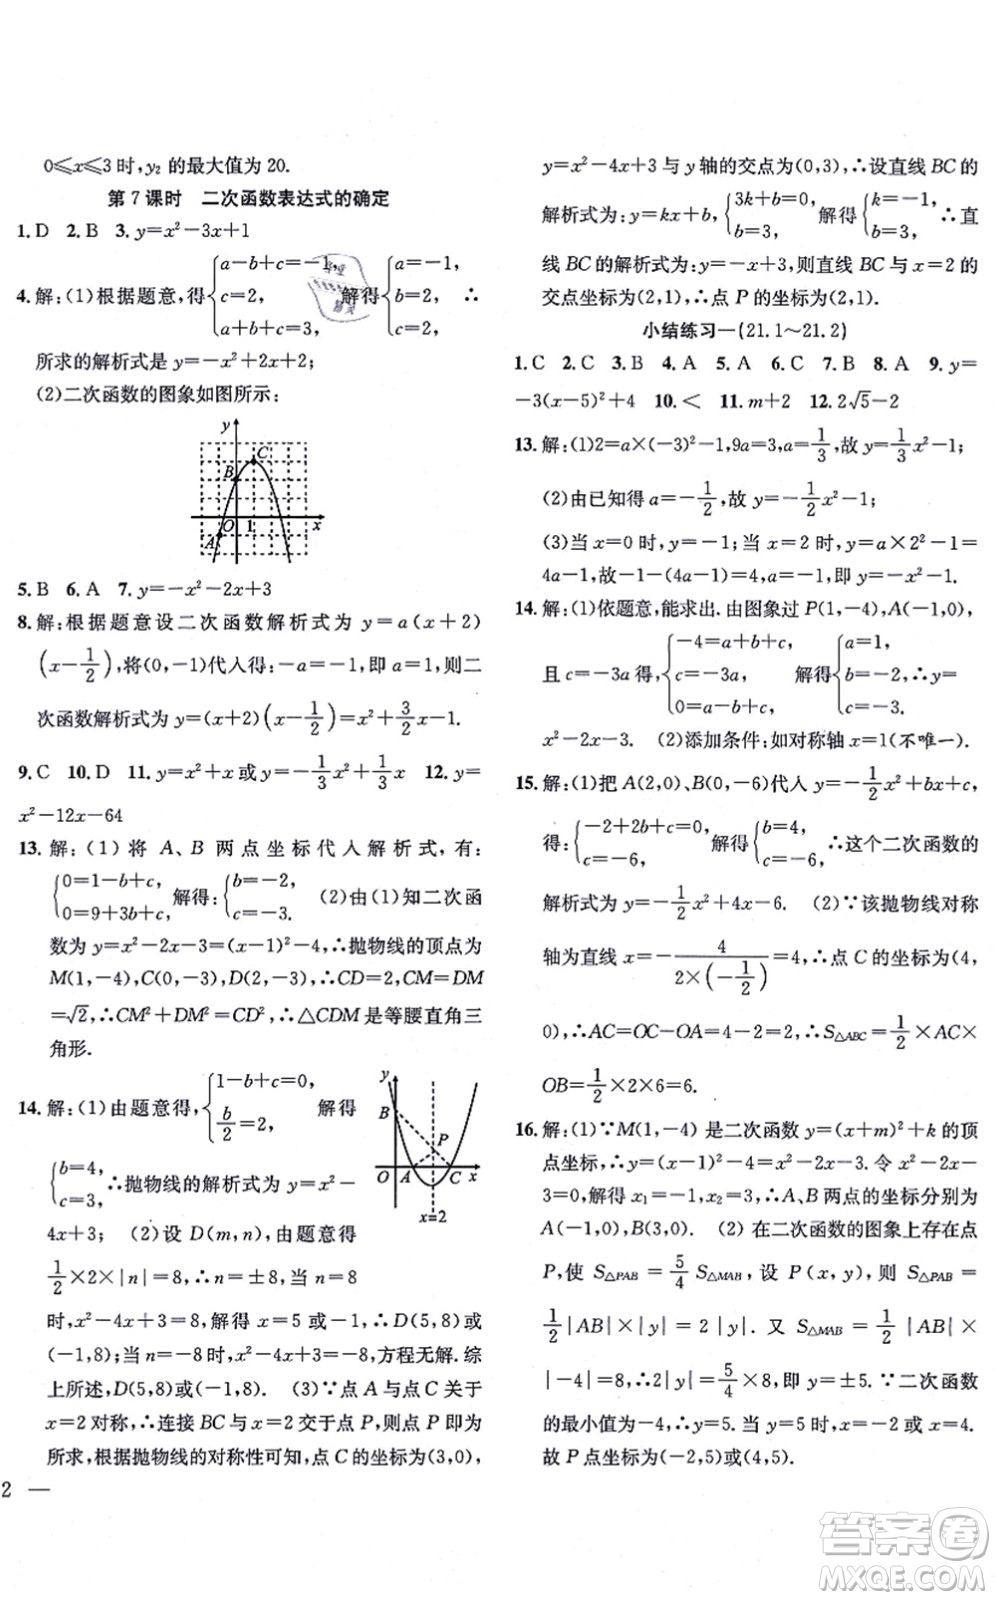 0≤x≤3时,y₂的最大值为20.
第7课时 二次函数表达式的确定
1.D 2.B 3.y=x²-3x+1
4.解:(1)根据题意,得{a-b+c=-1, c=2, a+b+c=3, 解得{a=-1, b=2, c=2, ∴
所求的解析式是y=-x²+2x+2;
(2)二次函数的图象如图所示:
y
C
B
O 1 x
A
5.B 6.A 7.y=-x²-2x+3
8.解:根据题意设二次函数解析式为y=a(x+2)
(x-1/2),将(0,-1)代入得:-a=-1,即a=1,则二
次函数解析式为y=(x+2)(x-1/2)=x²+3/2x-1.
9.C 10.D 11.y=x²+x或y=-1/3x²+1/3x 12.y=
x²-12x-64
13.解:(1)将A、B两点坐标代入解析式,有:
{0=1-b+c, 0=9+3b+c, 解得:{b=-2, c=-3. (2)由(1)知二次函
数为y=x²-2x-3=(x-1)²-4,∴抛物线的顶点为
M(1,-4),C(0,-3),D(2,-3),∴CD=2,CM=DM
=√2,∴CM²+DM²=CD²,∴△CDM是等腰直角三
角形.
14.解:(1)由题意得,{1-b+c=0, b/2=2, 解得
{b=4, c=3, ∴抛物线的解析式为y=x²-
4x+3; (2)设D(m,n),由题意得
1/2×2×|n|=8,∴n=±8,当n=8
y
B
P
O A C x
x=2
时,x²-4x+3=8,解得x=5或x=-1,∴D(5,8)或
(-1,8);当n=-8时,x²-4x+3=-8,方程无解.综
上所述,D(5,8)或(-1,8). (3)∵点A与点C关于
x=2对称,∴连接BC与x=2交于点P,则点P即为
所求,根据抛物线的对称性可知,点C的坐标为(3,0),
2 —
y=x²-4x+3与y轴的交点为(0,3),∴设直线BC的
解析式为:y=kx+b,{3k+b=0, b=3, 解得{k=-1, b=3. ∴直
线BC的解析式为:y=-x+3,则直线BC与x=2的
交点坐标为(2,1),∴点P的坐标为(2,1).
小结练习一(21.1~21.2)
1.C 2.C 3.B 4.A 5.A 6.C 7.B 8.A 9.y=
-3(x-5)²+4 10.< 11.m+2 12.2√5-2
13.解:(1)2=a×(-3)²-1,9a=3,a=1/3,故y=1/3x²-1;
(2)由已知得a=-1/2,故y=-1/2x²-1;
(3)当x=0时,y=-1;当x=2时,y=a×2²-1=
4a-1.∵a<0,∴4a-1<-1,即y₁<-1.
14.解:(1)依题意,能求出.由图象过P(1,-4),A(-1,0),
且c=-3a得,{-4=a+b+c, c=-3a, 0=a-b+c, 解得{a=1, b=-2, c=-3. ∴y=
x²-2x-3. (2)添加条件:如对称轴x=1(不唯一).
15.解:(1)把A(2,0)、B(0,-6)代入y=-1/2x²+bx+c,
得:{-2+2b+c=0, c=-6, 解得{b=4, c=-6. ∴这个二次函数的
解析式为y=-1/2x²+4x-6. (2)∵该抛物线对称
轴为直线x=-4/(2×(-1/2))=4,∴点C的坐标为(4,
0),∴AC=OC-OA=4-2=2,∴S△ABC=1/2×AC×
OB=1/2×2×6=6.
16.解:(1)∵M(1,-4)是二次函数y=(x+m)²+k的顶
点坐标,∴y=(x-1)²-4=x²-2x-3.令x²-2x-3
=0,解得x₁=-1,x₂=3,∴A、B两点的坐标分别为
A(-1,0),B(3,0). (2)在二次函数的图象上存在点
P,使S△PAB=5/4S△MAB,设P(x,y),则S△PAB=
1/2|AB|×|y|=2|y|.又S△MAB=1/2|AB|×
|-4|=8,∴2|y|=5/4×8,即y=±5.∵二次函数
的最小值为-4,∴y=5.当y=5时,x=-2或x=4.
故P点坐标为(-2,5)或(4,5).
答案卷
MXQE.COM